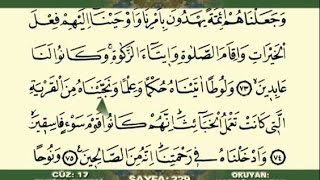 وَجَعَلْنَاهُمْ اَئِمَّةً يَهْدُونَ بِاَمْرِنَا وَاَوْحَيْنَٓا اِلَيْهِمْ فِعْلَ
الْخَيْرَاتِ وَاِقَامَ الصَّلٰوةِ وَا۪يتَٓاءَ الزَّكٰوةِۚ وَكَانُوا لَنَا
عَابِد۪ينَۚ ﴿٧٣﴾ وَلُوطًا اٰتَيْنَاهُ حُكْمًا وَعِلْمًا وَنَجَّيْنَاهُ مِنَ الْقَرْيَةِ
الَّت۪ي كَانَتْ تَعْمَلُ الْخَبَٓائِثَۜ اِنَّهُمْ كَانُوا قَوْمَ سَوْءٍ فَاسِق۪ينَۙ
﴿٧٤﴾ وَاَدْخَلْنَاهُ ف۪ي رَحْمَتِنَاۜ اِنَّهُ مِنَ الصَّالِح۪ينَ۟ ﴿٧٥﴾ وَنُوحًا
CÜZ: 17 SAYFA: 329 OKUYAN: